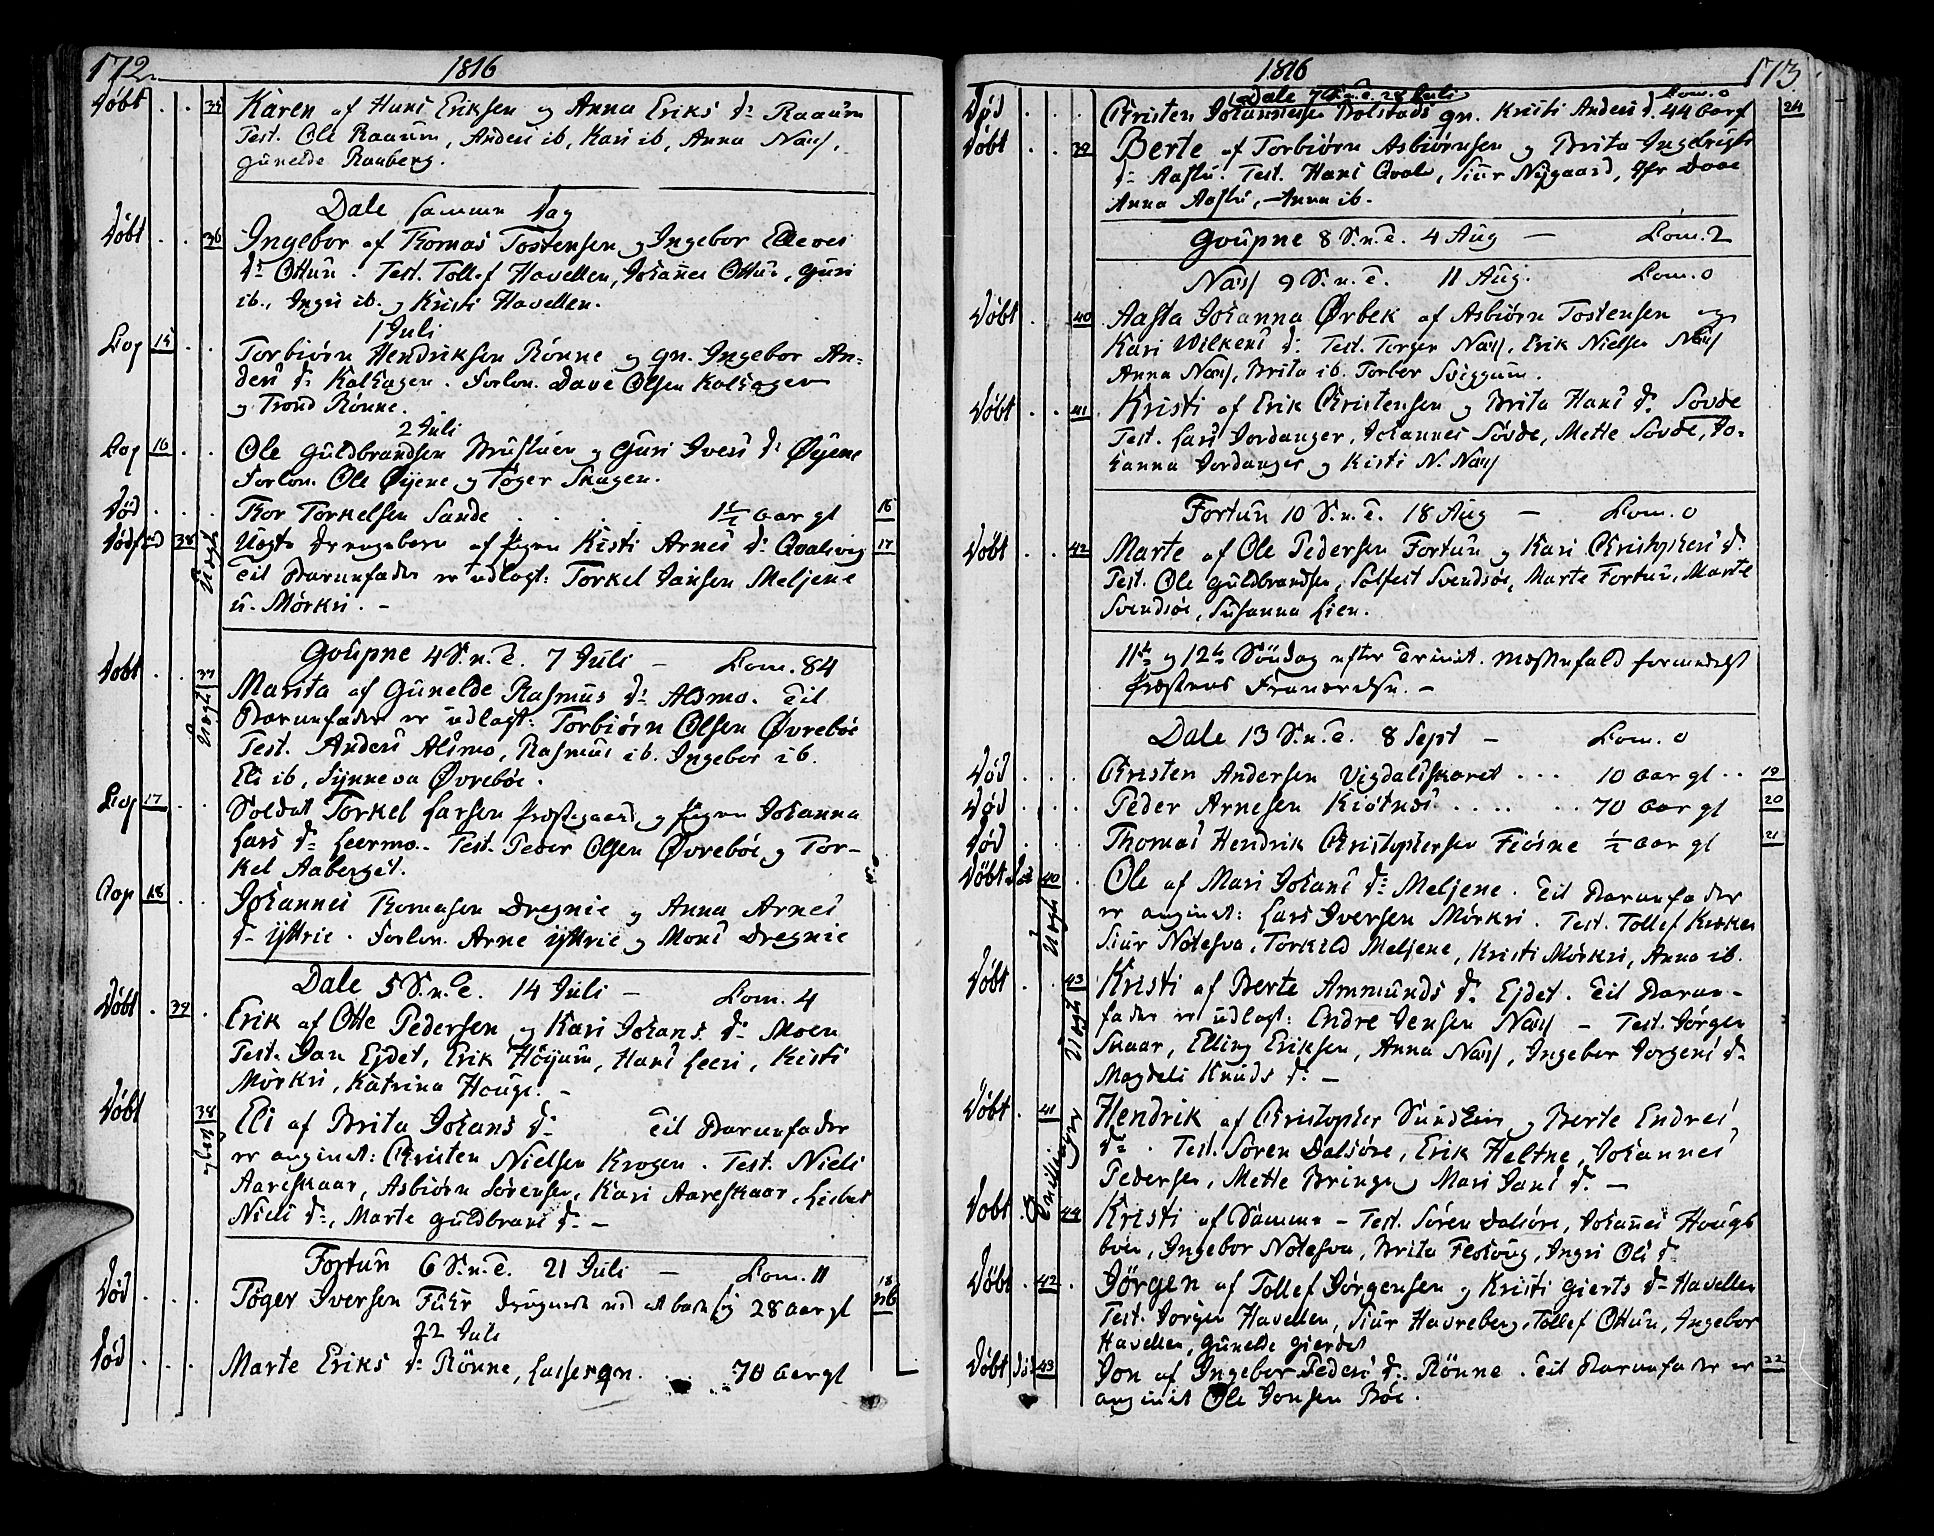 172. 1816
Døbt 35 Karen af Hans Eriksen og Anna Eriks d: Raaum
Test. Ole Raaum, Anders ib, Kari ib, Anna Næss,
Gunelde Rauberg.
Dale samme dag
Døbt 36 Ingebor af Thomas Tostensen og Ingebor Elleves
d: Ottun. Test. Tollef Havellen, Johanes Ottun, Guri
ib., Ingri ib. og Kristi Havellen.
1 Juli
Cop 15 Torbiørn Hendriksen Rønne og qn. Ingebor An-
ders d: Kolhagen. Forlov. Dave Olsen Kolhagen
og Trond Rønne.
2 Juli
Cop 16 Ole Guldbrandsen Brustuen og Guri Ivers d: Øyene
Forlov. Ole Øyene og Tøger Skagen.
Død Thor Torkelsen Sande 1½ aar gl 16
Dødfød 38 Uægte Drengebarn af Pigen Kisti Arnes d: Qvalevig 17
Til Barnefader er udlagt: Torkel Jansen Meljene
u. Mørkri. -
Uægte
Goupne 4 S. n. T. 7 Juli - Com. 84
Døbt 37 Marita af Gunelde Rasmus d: Alsmo. Til
Barnefader er udlagt: Torbiørn Olsen Øvrebøe
Uægte
Test. Anders Alsmo, Rasmus ib. Ingebor ib.
Eli ib, Synneva Øvrebøe.
Cop 17 Soldat Torkel Larsen Præstegaard og Pigen Johanna
Lars d: Leermo. Test. Peder Olsen Øvrebøe og Tor-
kel Aaberget.
Cop 18 Johannes Thomasen Dregnie og Anna Arnes
d: Yttrie. Forlov. Arne Yttrie og Mons Dregnie
Dale 5 S. n. T. 14 Juli - Com. 4
Døbt 39 Erik af Otte Pedersen og Kari Johans d: Moen
Test. Jan Ejdet, Erik Høyum, Hans Leeri, Kristi
Mørkri, Katrina Houge. -
Døbt 38 Eli af Brita Johans d: Til Barnefader
er angivet: Christen Nielsen Krogen. Test. Niels
Uægte
Aareskaar, Asbiørn Sørensen, Kari Aareskaar, Lisbet
Niels d:, Marte Guldbrans d: -
Fortun 6 S. n. T. 21 Juli - Com. 11
Død Tøger Iversen Fuhr 28 aar gl 18
22 Juli
Død Marte Eriks d: Rønne, 70 aar gl
1816 173
Dale 7 S. n. T. 28 Juli Com. 0
Død Christen Johannesen Bolstads qn. Kristi Anders d. 44 aar gl 24
Døbt 39 Berte af Torbiørn Asbiørnsen og Brita Ingebrigts
d: Aaslu. Test. Hans Qvale, Siur Nygaard, Dave
Anna Aaslu, Anna ib.
Goupne 8 S. n. T. 4 Aug - Com. 2
Næss 9 S. n. T. 11 Aug. Com. 0
Døbt 40 Aasta Johanna Ørbek af Asbiørn Tostensen og
Kari Wilkens d: Test. Torger Næss, Erik Nielsen Næss
Anna Næss, Brita ib. Torber Sviggum.
Døbt 41 Kristi af Erik Christensen og Brita Hans d: Søvde
Test. Lars Jordanger, Johannes Søvde, Mette Søvde, Jo-
hanna Jordanger og Kisti N. Næss
Fortun 10 S. n. T. 18 Aug - Com. 0
Døbt 42 Marte af Ole Pedersen Fortun og Kari Christophers d.
Test. Ole Guldbrandsen, Solfest Svendsøe, Marte Fortun, Marte
Svendsøe, Susanna Lien.
11te og 12te Søndag efter Trinit. Messefald formedelst
Præstens Fraværelse. -
Dale 13 S. n. T. 8 Sept - Com. 0
Død Christen Andersen Vigdalskaret 10 aar gl 19
Død Peder Arnesen Kiøtnæs 70 aar gl 20
Død Thomas Hendrik Christophersen Fiøsne ½ aar gl 21
Døbt 40 Ole af Mari Johans d: Meljene. Til Barnefader
er angivet: Lars Iversen Mørkri. Test. Tollef
Uægte
Siur Notesva, Torkild Meljene, Kristi Mørkri, Anna ib.
Døbt 43 Kristi af Berte Ammunds d. Ejdet. Til Barne-
fader er udlagt: Endre Jensen Næss - Test. Jørgen
Uægte
Skaar, Elling Eriksen, Anna Næss, Ingebor Jørgens d:
Magdeli Knuds d: -
Døbt 41 Hendrik af Christopher Sundhein og Berte Endres
d: . Test. Søren Dalsøre, Erik Heltne, Johannes
Tvillinger
Pedersen, Mette Bringe og Mari Jans d. -
Døbt 44 Kristi af Samme - Test. Søren Dalsøre, Johanes Houge
boen, Ingebor Notesva, Brita Flohoug, Ingri Ols d:
Døbt 42 Jørgen af Tollef Jørgensen og Kristi Gierts d: Havellen
Test. Jørgen Havellen, Siur Havreberg, Tollef Ottun, Ingebor
Havellen, Gunelde Gierdet
Døbt 43 Jon af Ingebor Peders d: Rønne. Til Barnefader er 22
angivet Ole Jonsen Bøe.